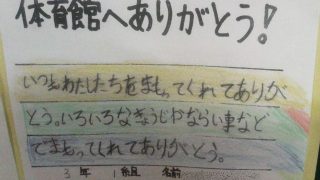 体育館へありがとう!
いつもわたしたちをまもってくれてありが
とう。いろいろなぎょうじやならい事など
でまもってくれてありがとう。
3年 1組 名前